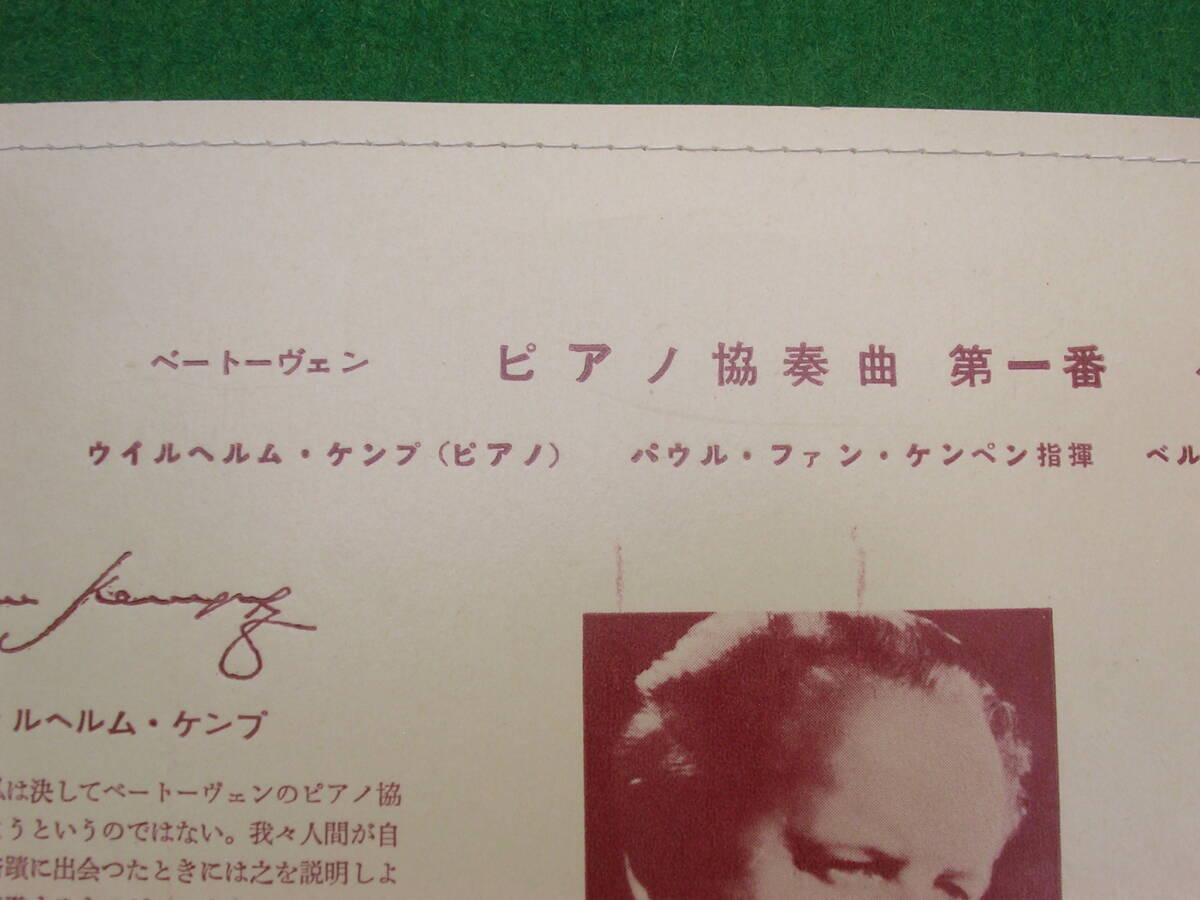 ベートーヴェン ピアノ協奏曲 第一番
ウイルヘルム・ケンプ（ピアノ） パウル・ファン・ケンペン指揮 ベル
ルヘルム・ケンプ
は決してベートーヴェンのピアノ協
うというのではない。我々人間が自
蹟に出会つたときには之を説明しよ